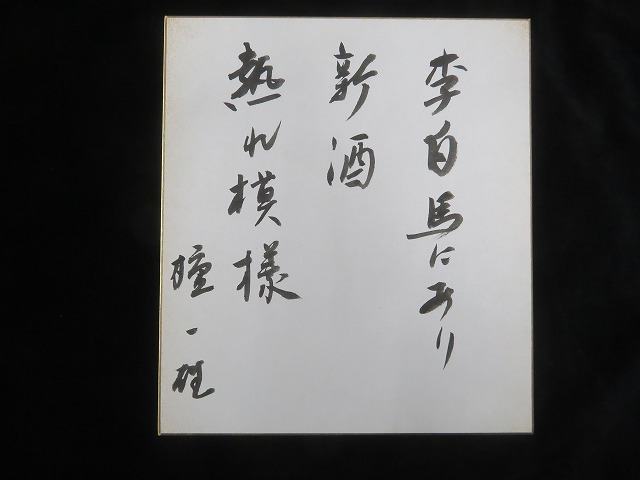 李白馬にあり
新酒
熱れ模様
檀一雄